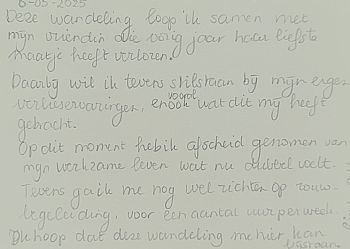 6-05-2025
Deze wandeling loop ik samen met
mijn vriendin die vorig jaar haar liefste
maatje heeft verloren.
Daarbij wil ik tevens stilstaan bij mijn eigen
verlieservaringen, en ook vooral wat dit mij heeft
gebracht.
Op dit moment heb ik afscheid genomen van
mijn werkzame leven wat nu dubbel voelt.
Tevens ga ik me nog wel richten op rouw-
begeleiding, voor een aantal uur per week.
Ik hoop dat deze wandeling me hier kan